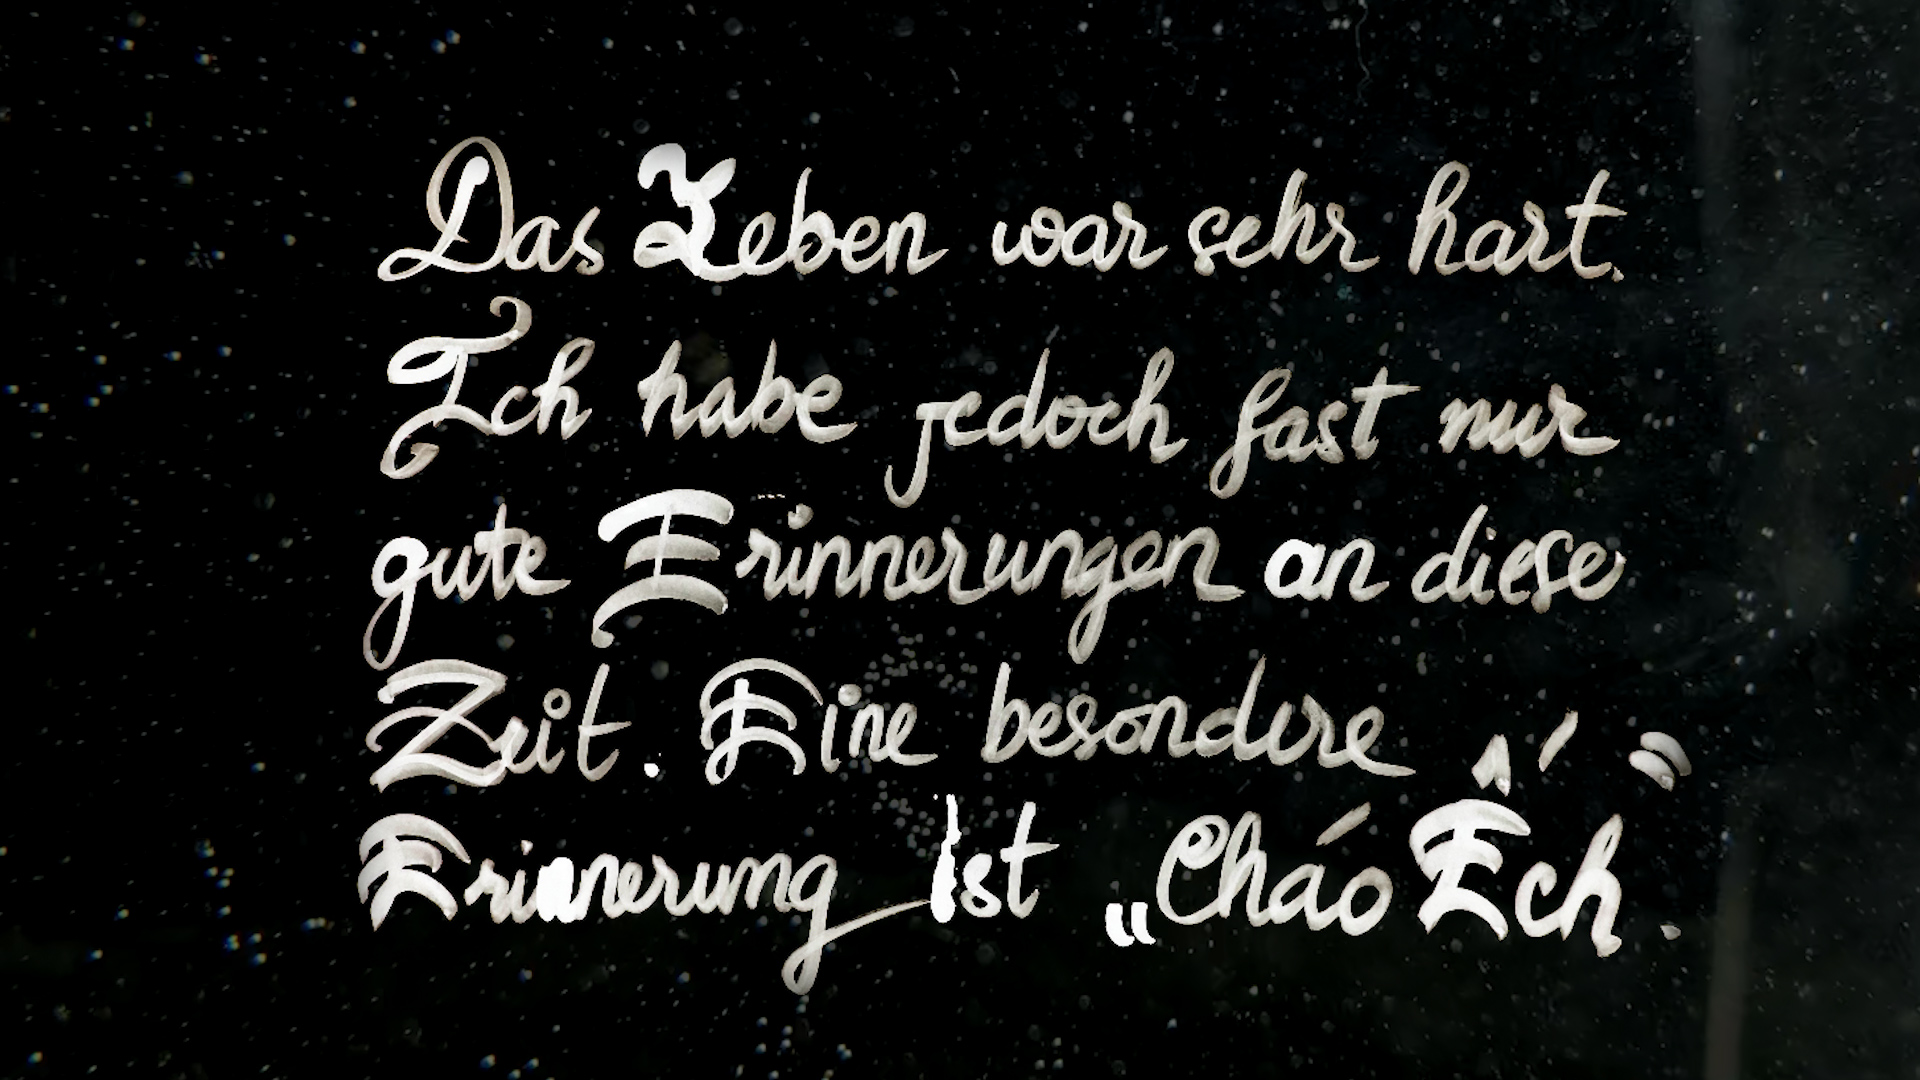 Das Leben war sehr hart.
Ich habe jedoch fast nur
gute Erinnerungen an diese
Zeit. Eine besondere
Erinnerung ist „Cháo Ếch“.